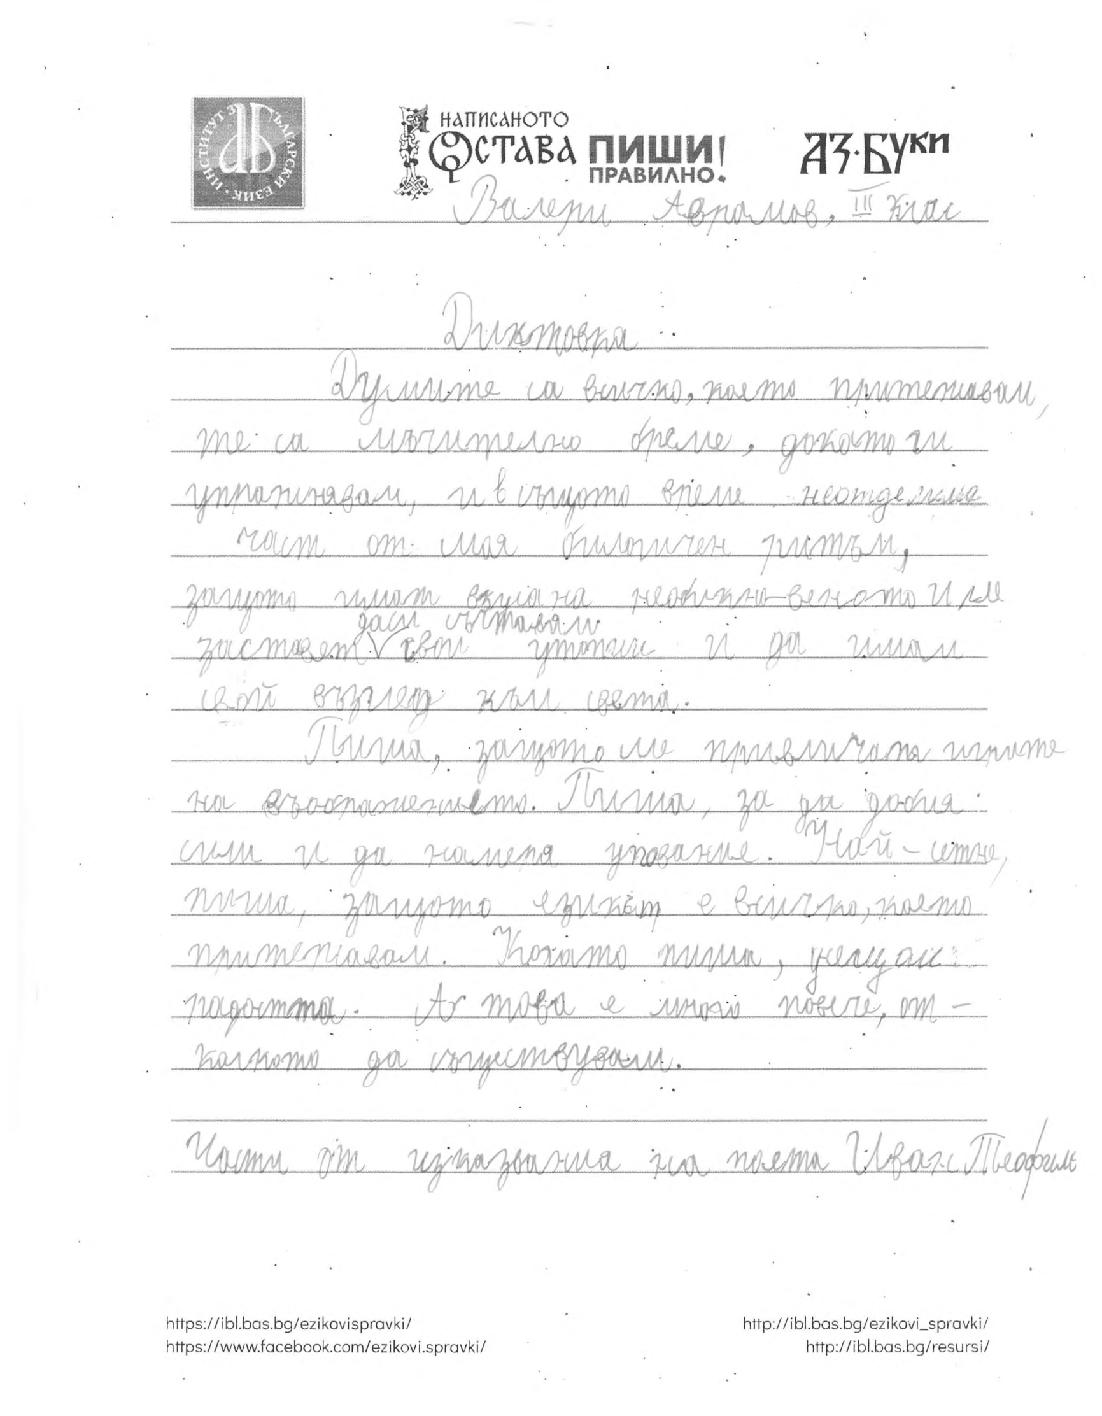 ИНСТИТУТ ЗА БЪЛГАРСКИ ЕЗИК
НАПИСАНОТО
ОСТАВА ПИШИ
ПРАВИЛНО!
АЗ·БУКИ
Валери Аврамов, III клас
Диктовка
Думите са всичко, което притежавам,
те са мъчително бреме, докато ги
упражнявам, и в същото време неотделима
част от моя биологичен ритъм,
защото имат на необикновеното И ме
да си съставям
заставят √ свои утопии и да имам
свой възглед към света.
Пиша, защото ме привличат игрите
на въображението. Пиша, за да добия
сили и да намеря упование. Най-сетне,
пиша, защото езикът е всичко, което
притежавам. Когато пиша, усещам
радостта. А това е много повече, от-
колкото да съществувам.
Части от изказвания на поета Иван Теофилов
https://ibl.bas.bg/ezikovispravki/
http://ibl.bas.bg/ezikovi_spravki/
https://www.facebook.com/ezikovi.spravki/
http://ibl.bas.bg/resursi/